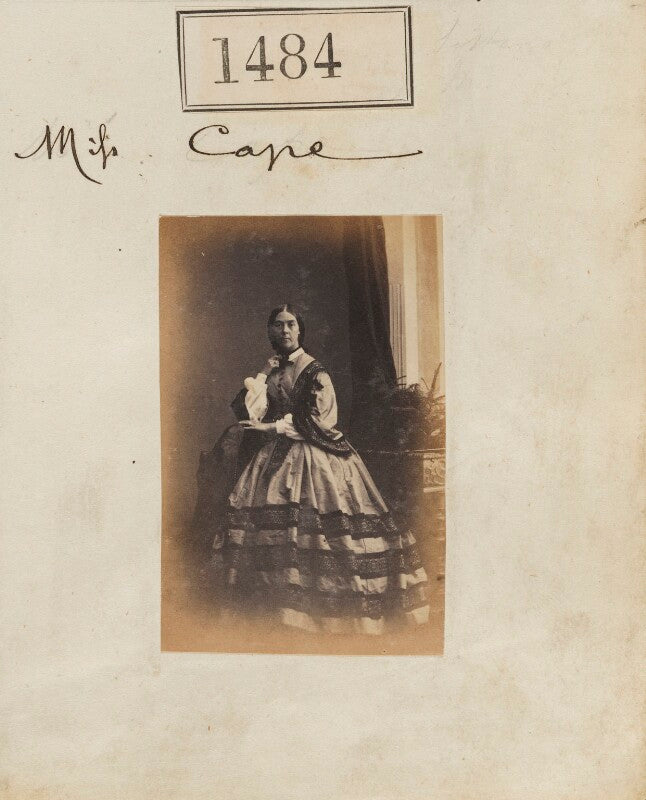 1484
Miſs Cape